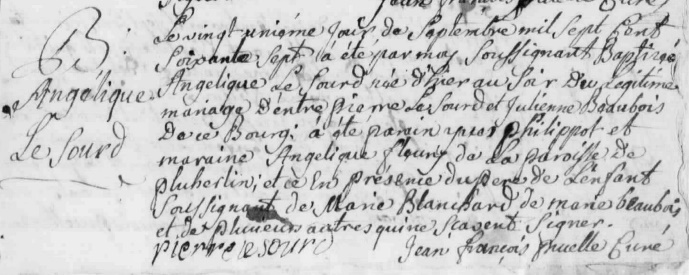 B.
Angélique
Le Sourd
Le vingt unième Jour de Septembre mil Sept Cent
Soixante Sept à été par moy Soussignant Baptizée
Angelique Le Sourd née d'hier au Soir Du Legitime
mariage D'entre pierre Le Sourd et Julienne Beaubois
De ce Bourg; à été parain philippot et
maraine Angelique fleury de La paroisse De
pluherlin; et ce En présence du pere de L'enfant
Soussignant de Marie Blanchard de marie beaubois
et de plusieurs autres qui ne scavent Signer.
pierre le sourd Jean françois Curé